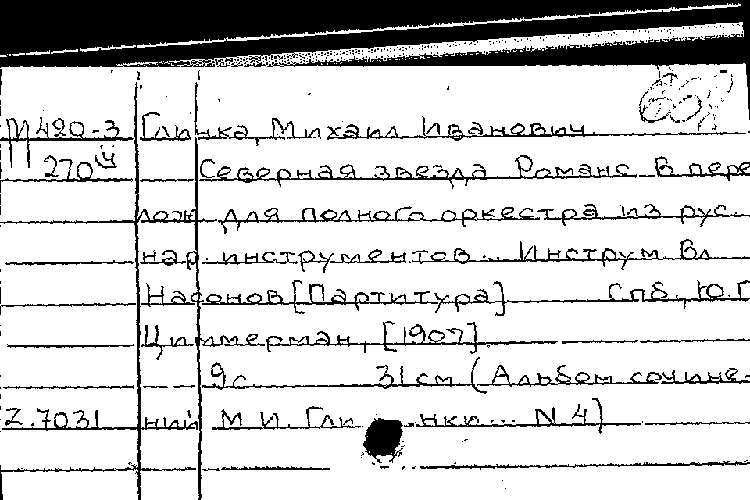 М 480-3 Глинка, Михаил Иванович.
270 Северная звезда Романс В пере
лож. для полного оркестра из рус.
нар. инструментов... Инструм. Вл
Насонов [Партитура] Спб., Ю.Г
Циммерман, [1907].
9с. 31см (Альбом сочине-
Z.7031 ний М.И. Глинки... N 4)